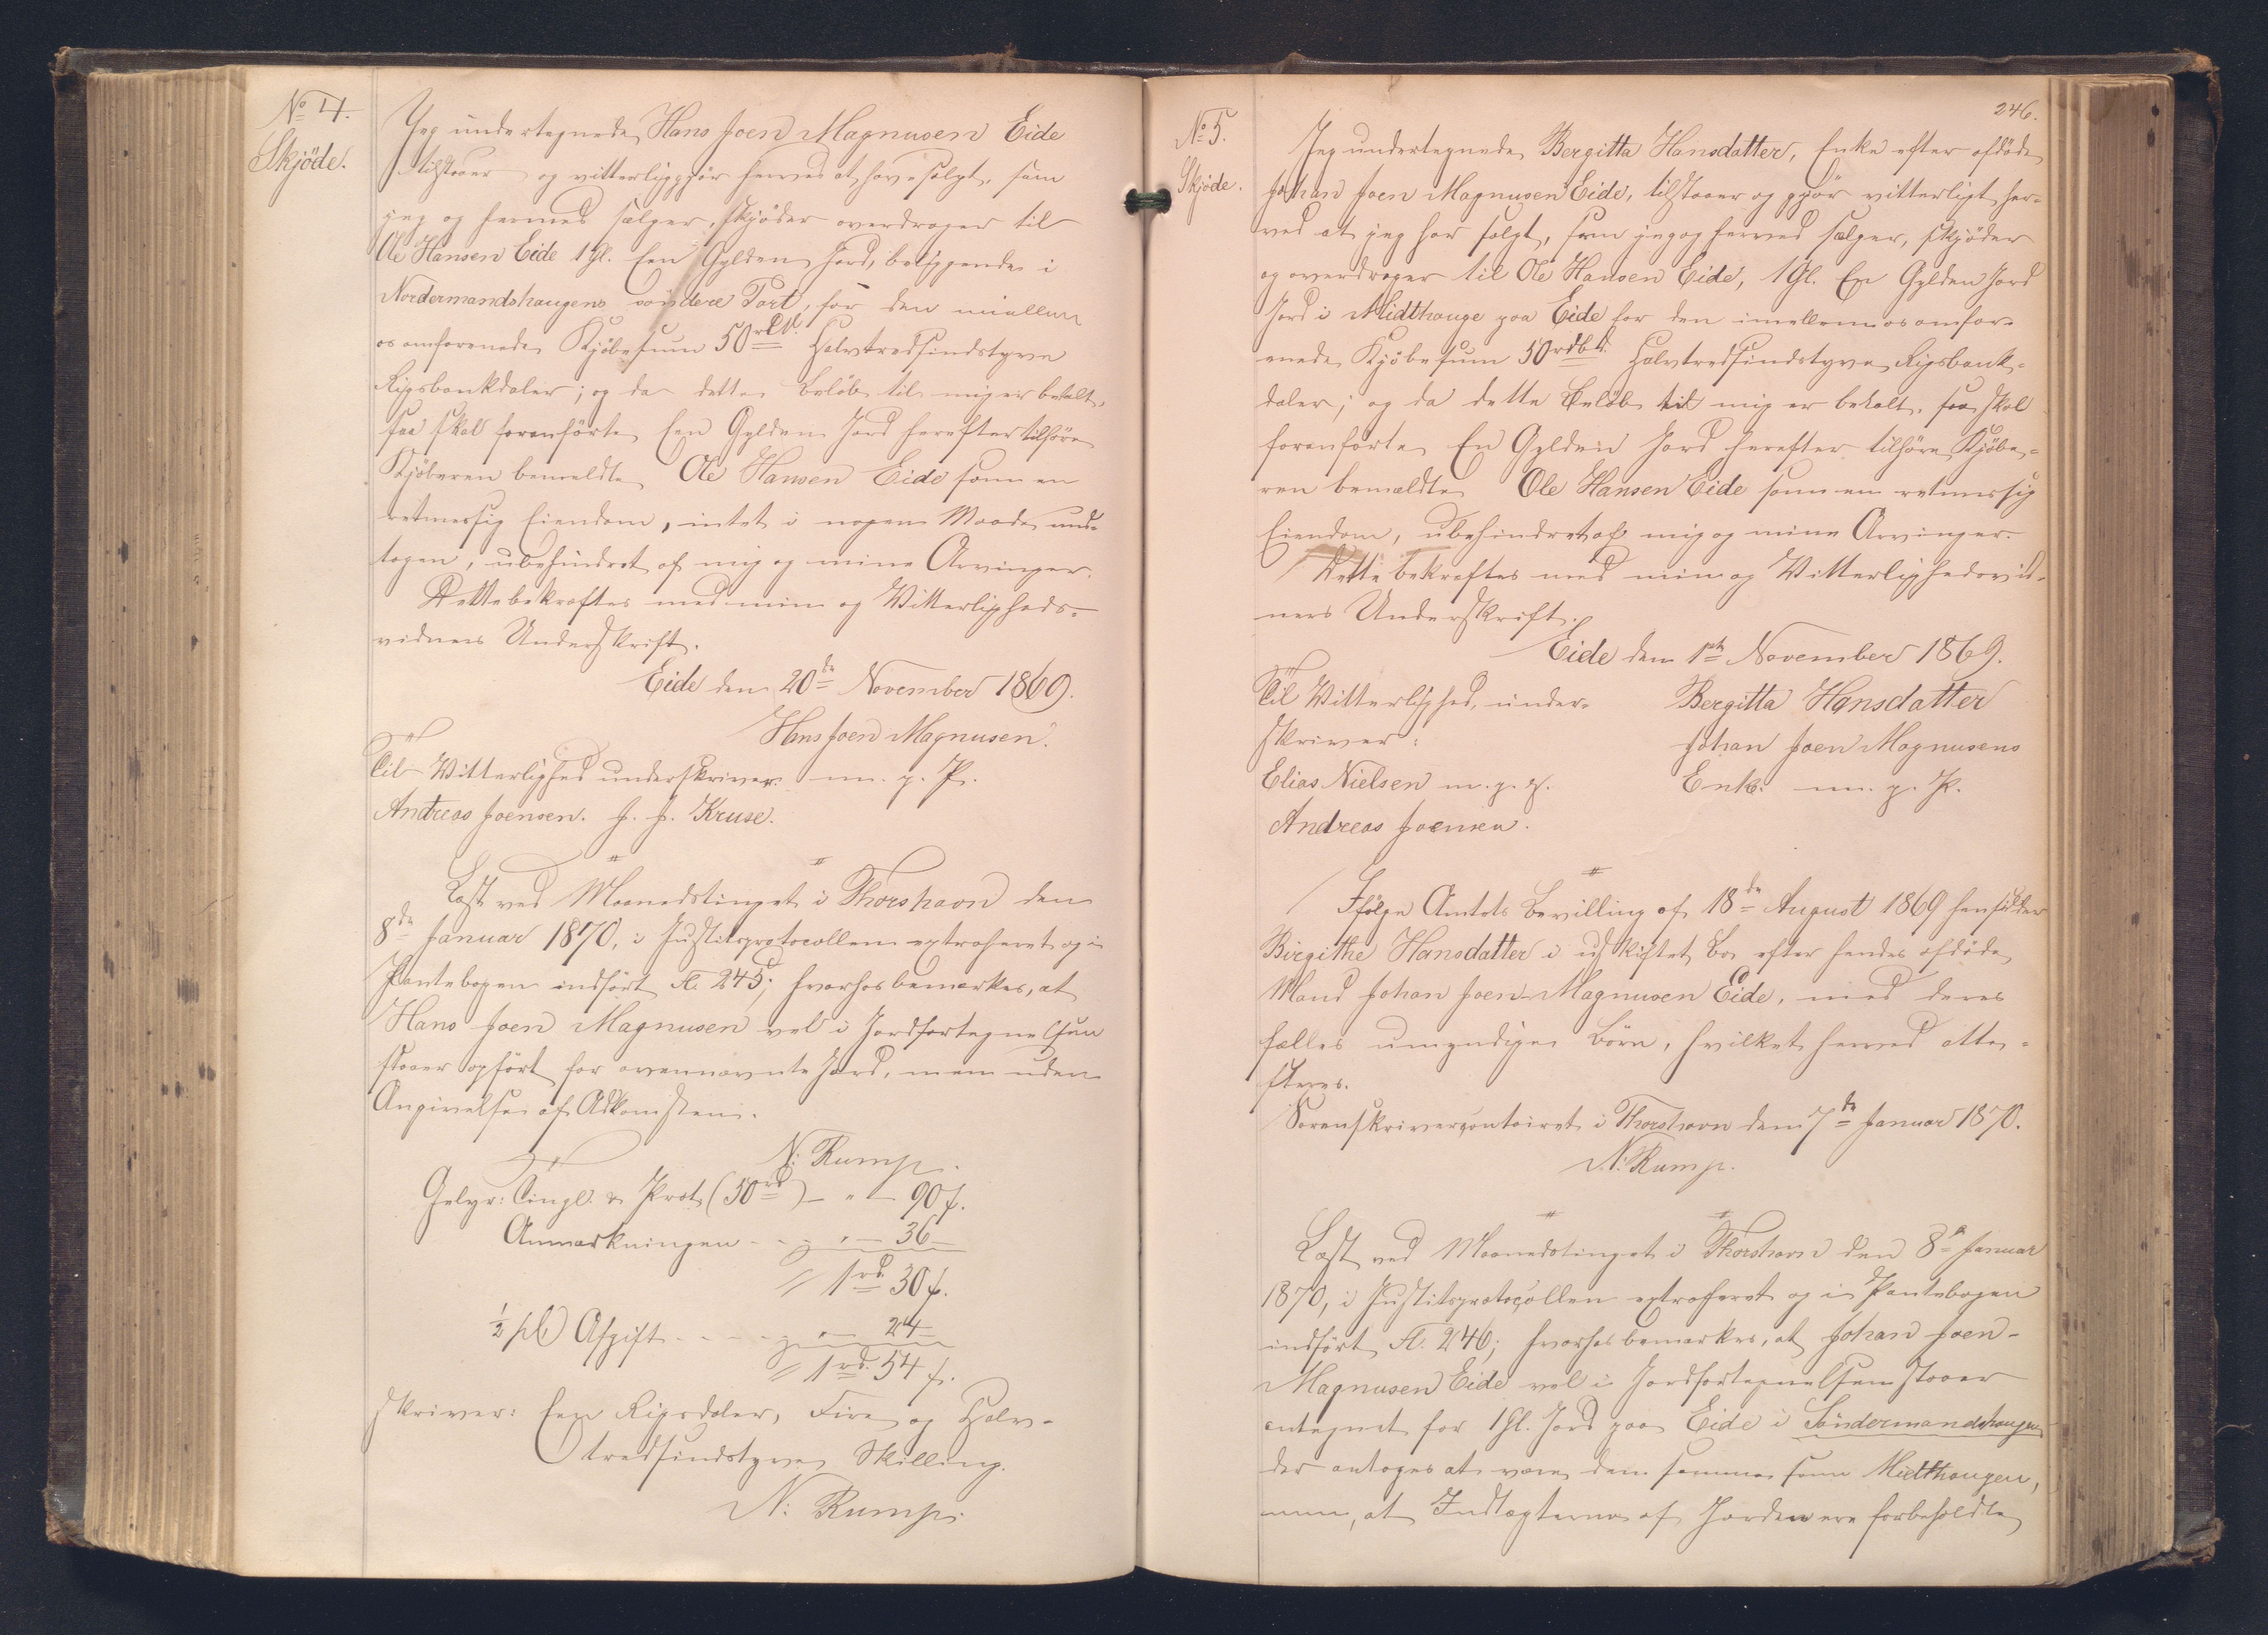 No 4.
Skjöde.
Jeg undertegnede Hans Joen Magnusen Eide
tilstaaer og vitterliggjör herved at have solgt, som
jeg og hermed sælger, skjöder overdrager til
Ole Hansen Eide 1 Gl. Een Gylden Jord, beliggende i
Nordermandshaugens söndere Part, for den imellem
os omforenede Kjöbesum 50 rd. Halvtredsindstyve
Rigsbankdaler; og da dette Belöb til mig er betalt,
saa skal foranförte Een Gylden Jord herefter tilhöre
Kjöberen bemeldte Ole Hansen Eide som en
retmessig Eiendom, intet i nogen Maade und-
tagen, ubehindret af mig og mine Arvinger.
Dette bekræftes med min og Vitterligheds-
vidners Underskrift.
Eide den 20de November 1869.
Hans Joen Magnusen.
Til Vitterlighed underskriver m. p. P.
Andreas Joensen. J. J. Kruse.
Læst ved Maanedstinget i Thorshavn den
8de Januar 1870, i Justitsprotocollen extraheret og i
Pantebogen indfört Fl. 245; hvorhos bemærkes, at
Hans Joen Magnusen vel i Jordfortegnelsen
staaer opfört for ovennævnte Jord, men uden
Angivelse af Adkomsten.
N: Rump.
Gebyr: Tingl. & Prot. (50 rd) - " - 90 f.
Anmærkningen - - " - 36
1 rd. 30 f.
1/2 pCt Afgift - - - - " - 24
1 rd. 54 f.
skriver: Een Rigsdaler, Fire og Halv-
tredsindstyve Skilling.
N: Rump.
246.
No 5.
Skjöde.
Jeg undertegnede Bergitta Hansdatter, Enke efter afdöde
Johan Joen Magnusen Eide, tilstaaer og gjör vitterligt her-
ved at jeg har solgt, som jeg og herved sælger, skjöder
og overdrager til Ole Hansen Eide, 1 Gl. En Gylden Jord
Jord i Midthauge paa Eide for den imellem os omfor-
enede Kjöbesum 50 rdbd. Halvtredsindstyve Rigsbank-
daler; og da dette Belöb til mig er betalt, saa skal
foranförte En Gylden Jord herefter tilhöre Kjöbe-
ren bemældte Ole Hansen Eide som en retmessig
Eiendom, ubehindret af mig og mine Arvinger.
Dette bekræftes med min og Vitterlighedsvid-
ners Underskrift.
Eide den 1ste November 1869.
Til Vitterlighed, under-
skriver:
Elias Nielsen m. p. P.
Andreas Joensen.
Bergitta Hansdatter
Johan Joen Magnusens
Enke. m. p. P.
Ifölge Amtets Bevilling af 18de August 1869 hensidder
Birgithe Hansdatter i uskiftet Bo efter hendes afdöde
Mand Johan Joen Magnusen Eide, med deres
fælles umyndige Börn, hvilket herved atte-
steres.
Sorenskrivercontoiret i Thorshavn den 7de Januar 1870.
N: Rump.
Læst ved Maanedstinget i Thorshavn den 8de Januar
1870, i Justitsprotocollen extraheret og i Pantebogen
indfört Fl. 246; hvorhos bemærkes, at Johan Joen-
Magnusen Eide vel i Jordfortegnelsen staaer
antegnet for 1 Gl. Jord paa Eide i Söndermandshaugen
der antages at være den samme som Midthaugen,
men, at Indtægterne af Jorden ere forbeholdte